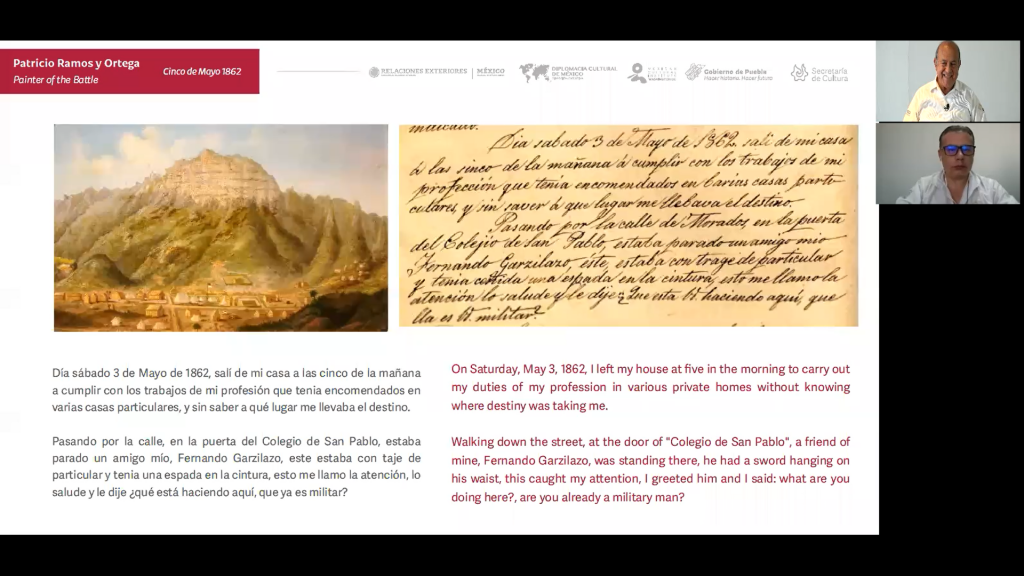 Patricio Ramos y Ortega
Painter of the Battle
Cinco de Mayo 1862
RELACIONES EXTERIORES | MÉXICO
DIPLOMACIA CULTURAL
DE MÉXICO
Gobierno de Puebla
Hacer historia. Hacer futuro.
Secretaría
de Cultura
Dia sabado 3 de Mayo de 1862. salí de mi casa
á las cinco de la mañana á cumplir con los trabajos de mi
profección que tenia encomendados en barias casas parti-
culares, y sin saver á que lugar me llebava el destino.
Pasando por la calle de Morados, en la puerta
del Colejio de San Pablo, estaba parado un amigo mio
Fernando Garzilazo, éste, estaba con trage de particular
y tenia ceñida una espada en la cintura, esto me llamo la
atención lo salude y le dije ¿Que esta V. haciendo aquí, que
lla es V. militar?
Día sábado 3 de Mayo de 1862, salí de mi casa a las cinco de la mañana
a cumplir con los trabajos de mi profesión que tenia encomendados en
varias casas particulares, y sin saber a qué lugar me llevaba el destino.
Pasando por la calle, en la puerta del Colegio de San Pablo, estaba
parado un amigo mío, Fernando Garzilazo, este estaba con taje de
particular y tenia una espada en la cintura, esto me llamo la atención, lo
salude y le dije ¿qué está haciendo aquí, que ya es militar?
On Saturday, May 3, 1862, I left my house at five in the morning to carry out
my duties of my profession in various private homes without knowing
where destiny was taking me.
Walking down the street, at the door of "Colegio de San Pablo", a friend of
mine, Fernando Garzilazo, was standing there, he had a sword hanging on
his waist, this caught my attention, I greeted him and I said: what are you
doing here?, are you already a military man?